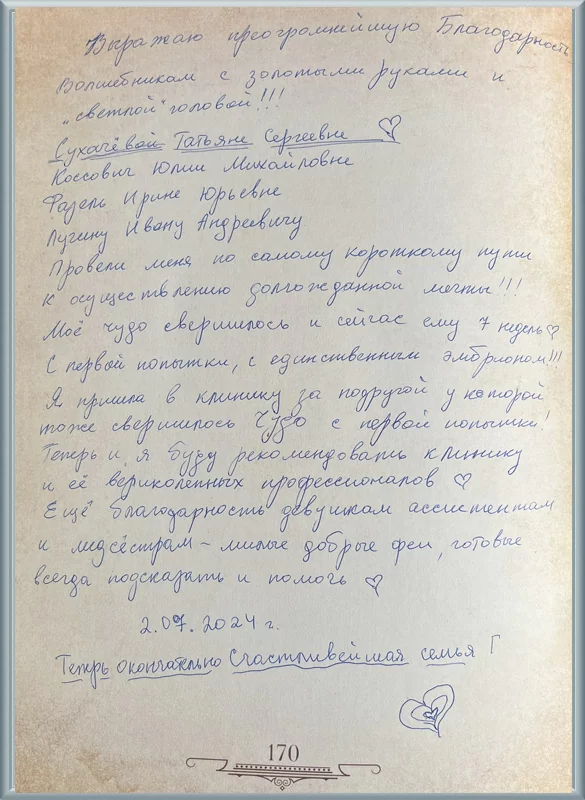 Выражаю преогромнейшую Благодарность
Волшебникам с золотыми руками и
"светлой" головой!!!
Сухачёвой Татьяне Сергеевне
Коссович Юлии Михайловне
Фазель Ирине Юрьевне
Лугину Ивану Андреевичу
Провели меня по самому короткому пути
к осуществлению долгожданной мечты!!!
Моё чудо свершилось и сейчас ему 7 недель
С первой попытки, с единственным эмбрионом!!!
Я пришла в клинику за подругой у которой
тоже свершилось Чудо с первой попытки!
Теперь и я буду рекомендовать клинику
и её великолепных профессионалов
Ещё благодарность девушкам ассистентам
и медсёстрам - милые добрые феи, готовые
всегда подсказать и помочь
2.07.2024 г.
Теперь окончательно Счастливейшая семья Г
170